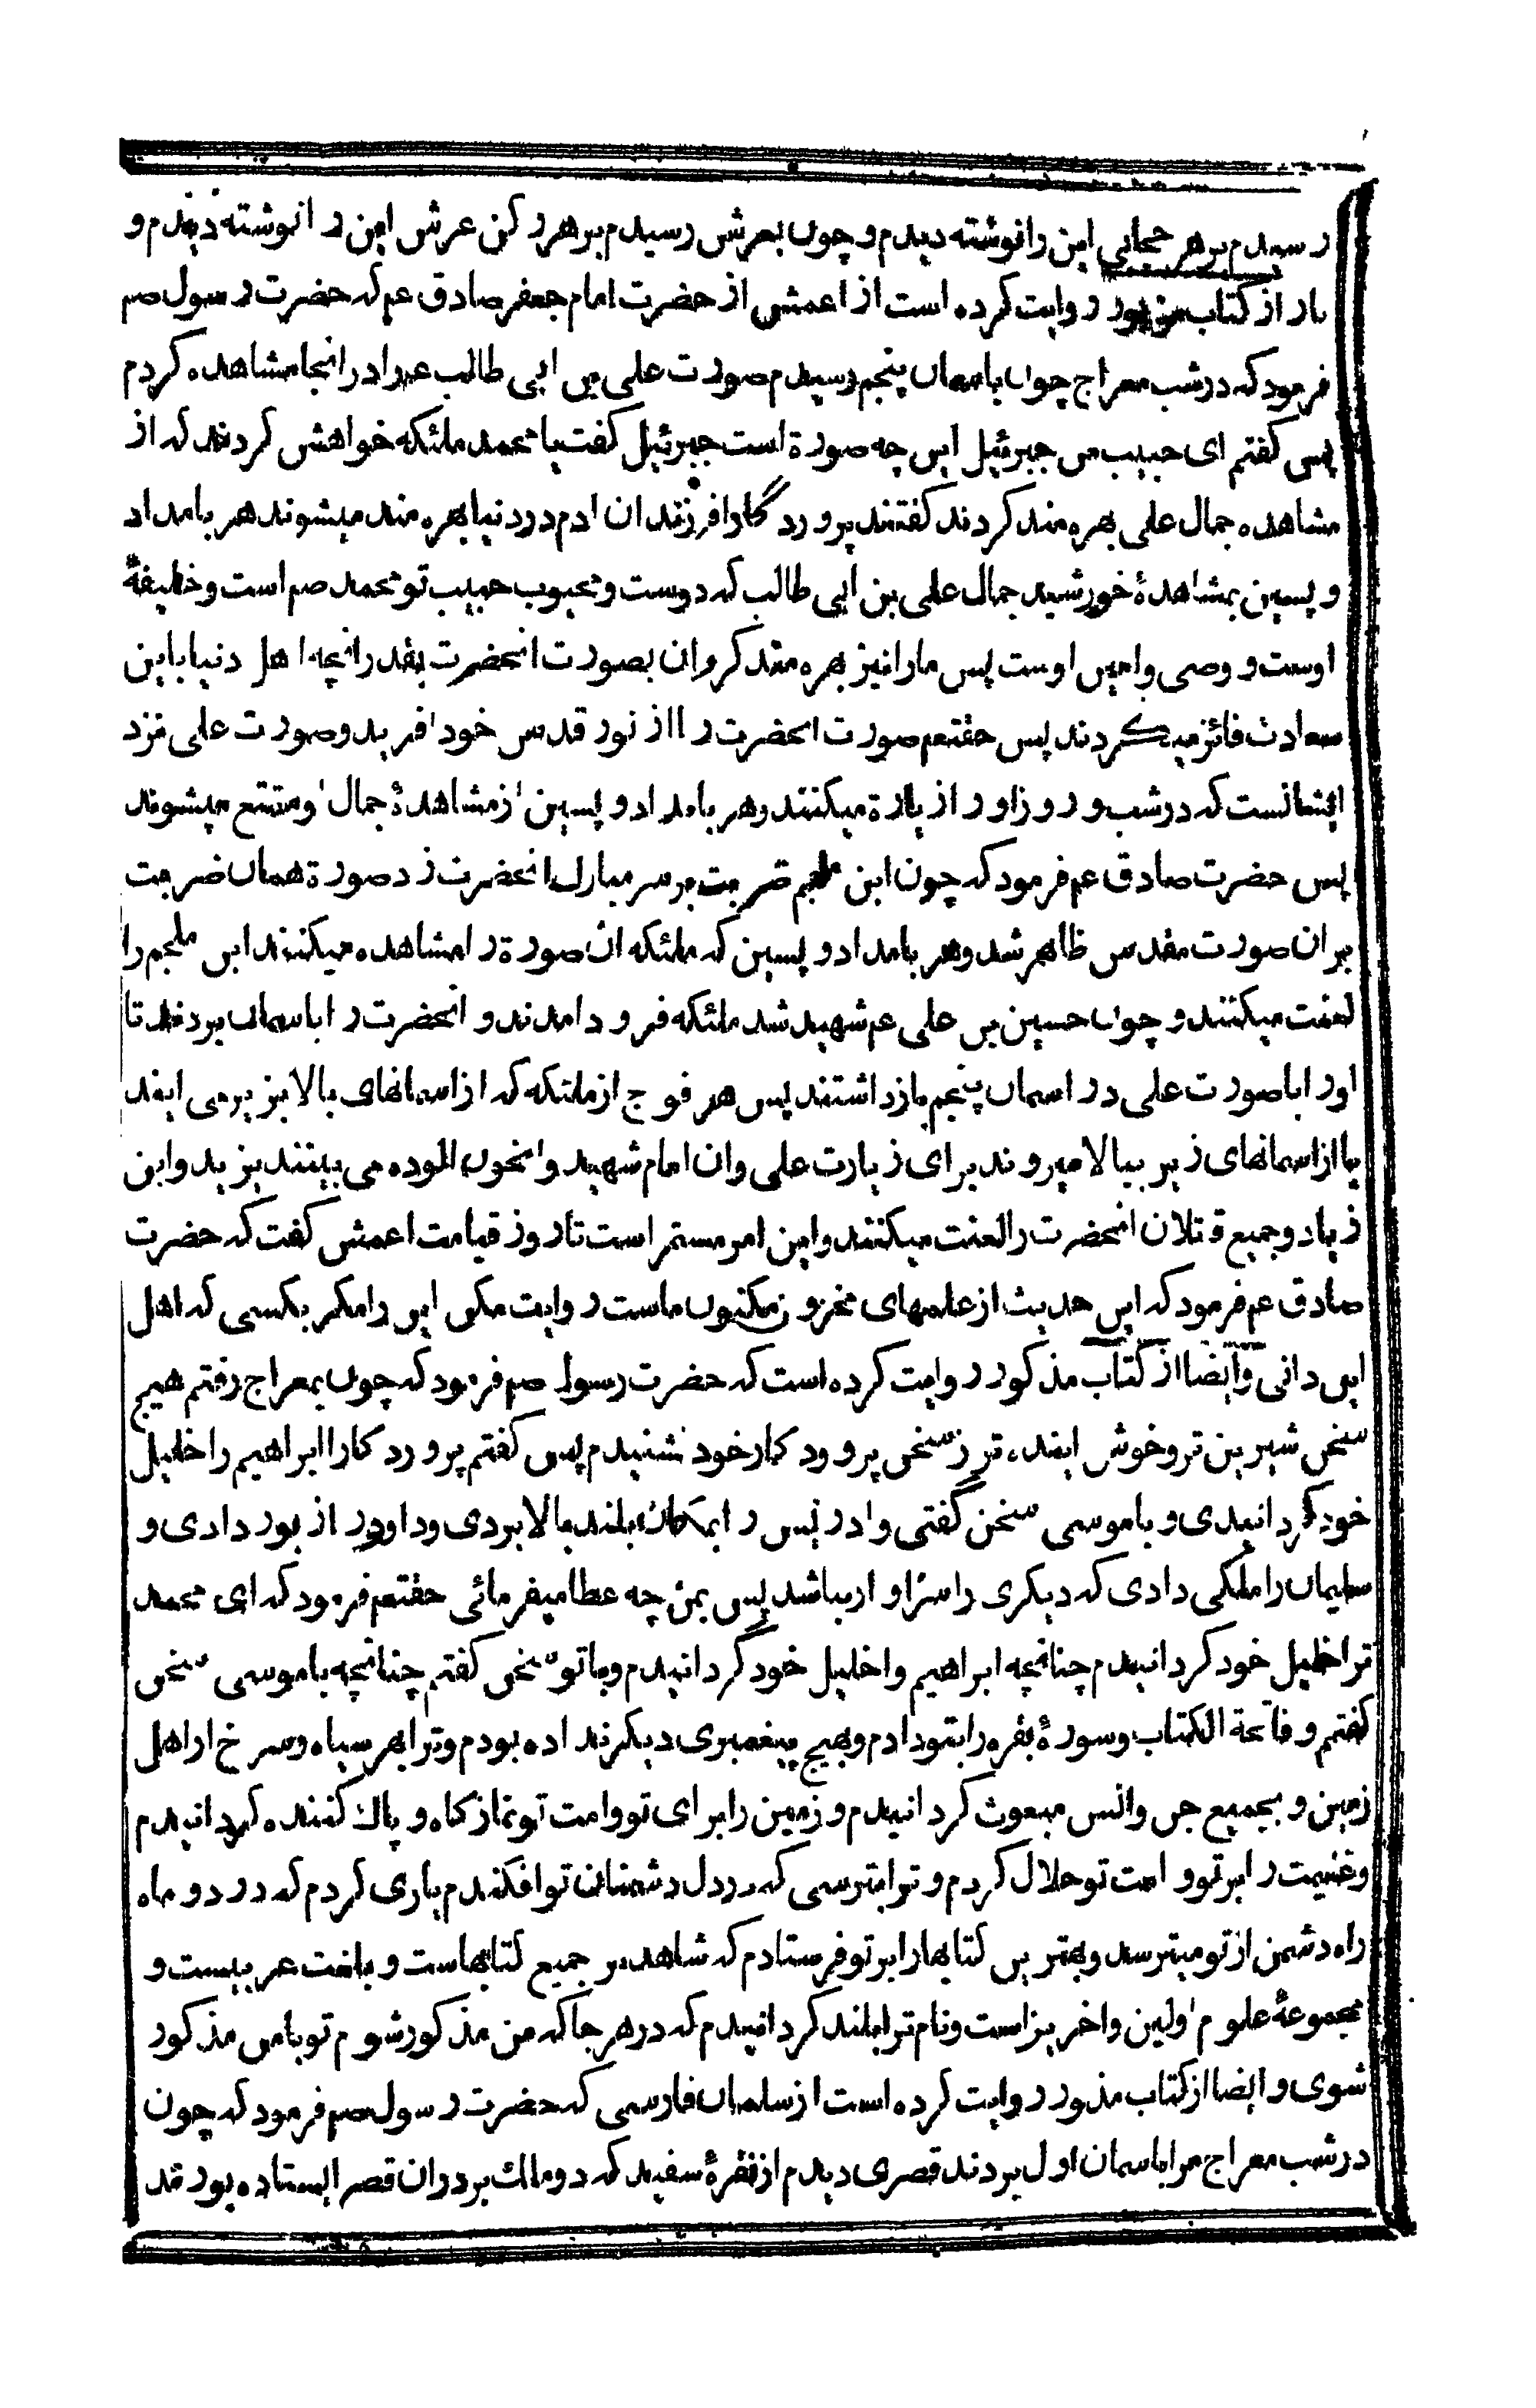 رسیدم برهر حجابی این را نوشته دیدم و چون بعرش رسیدم برهر رکن عرش این را نوشته دیدم و
باز از کتاب مزبور روایت کرده است از اعمش از حضرت امام جعفر صادق عم که حضرت رسول صم
فرمود که درشب معراج چون باسمان پنجم رسیدم صورت علی بن ابی طالب عم را درانجا مشاهده کردم
پس کفتم ای حبیب من جبرئیل این چه صورة است جبرئیل کفت یا محمد ملئکه خواهش کردند که از
مشاهده جمال علی بهره مند کردند کفتند پرورد گارا فرزندان ادم در دنیا بهره مند میشوند هر بامداد
و پسین بمشاهدهٔ خورشید جمال علی بن ابی طالب که دوست و محبوب حبیب تو محمد صم است و خلیفهٔ
اوست و وصی و امین اوست پس مارا نیز بهره مند کروان بصورت انحضرت بقدر انچه اهل دنیا باین
سعادت فائز میکردند پس حقتعم صورت انحضرت را از نور قدس خود افرید و صورت علی نزد
ایشانست که درشب و روز اورا زیارة میکنند و هر بامداد و پسین از مشاهدهٔ جمال او متمتع میشوند
پس حضرت صادق عم فرمود که چون ابن ملجم ضربت برسر مبارک انحضرت زد صورة همان ضربت
بران صورت مقدس ظاهر شد و هر بامداد و پسین که ملئکه ان صورة را مشاهده میکنند ابن ملجم را
لعنت میکنند و چون حسین بن علی عم شهید شد ملئکه فرود امدند و انحضرت را باسمان بردند تا
اورا باصورت علی در اسمان پنجم بازداشتند پس هر فوج از ملئکه که از اسمانهای بالا بزیر می ایند
یا از اسمانهای زیر ببالا میروند برای زیارت علی و ان امام شهید را بخون الوده می بینند یزید و ابن
زیاد و جمیع قتلان انحضرت را لعنت میکنند و این امر مستمر است تا روز قیامت اعمش کفت که حضرت
صادق عم فرمود که این حدیث از علمهای مخزون مکنون ماست روایت مکن این را مکر بکسی که اهل
این دانی و ایضا از کتاب مذکور روایت کرده است که حضرت رسول صم فرمود که چون بمعراج رفتم هیچ
سخن شیرین تر و خوش ایند، تر ز سخن پروود کار خود نشنیدم پس کفتم پرورد کارا ابراهیم را خلیل
خود گردانیدی و با موسی سخن گفتی و ادریس را بمکان بلند بالا بردی و داود را زبور دادی و
سلیمان را ملکی دادی که دیکری را سزاوار نباشد پس بمن چه عطا میفرمائی حقتعم فرمود که ای محمد
ترا خلیل خود کردانیدم چنانچه ابراهیم را خلیل خود گردانیدم و با تو سخن کفتم چنانچه با موسی سخن
کفتم و فاتحة الکتاب و سورهٔ بقره را بتو دادم و بهیچ پیغمبری دیکر نداده بودم و ترا بهر سیاه و سرخ از اهل
زمین و بجمیع جن و انس مبعوث کردانیدم و زمین را برای تو و امت تو نماز کاه و پاک کننده کردانیدم
و غنیمت را بر تو و امت تو حلال کردم و ترا بترسی که دردل دشمنان تو افکندم یاری کردم که در دو ماه
راه دشمن از تو میترسد و بهترین کتابها را بر تو فرستادم که شاهد بر جمیع کتابهاست و بلغت عربیست و
مجموعهٔ علوم اولین و اخرین است و نام ترا بلند کردانیدم که در هرجا که من مذکور شوم تو با من مذکور
شوی و ایضا از کتاب مذبور روایت کرده است از سلمان فارسی که حضرت رسول صم فرمود که چون
درشب معراج مرا باسمان اول بردند قصری دیدم از نقرهٔ سفید که دو ملک بر دران قصر ایستاده بودند